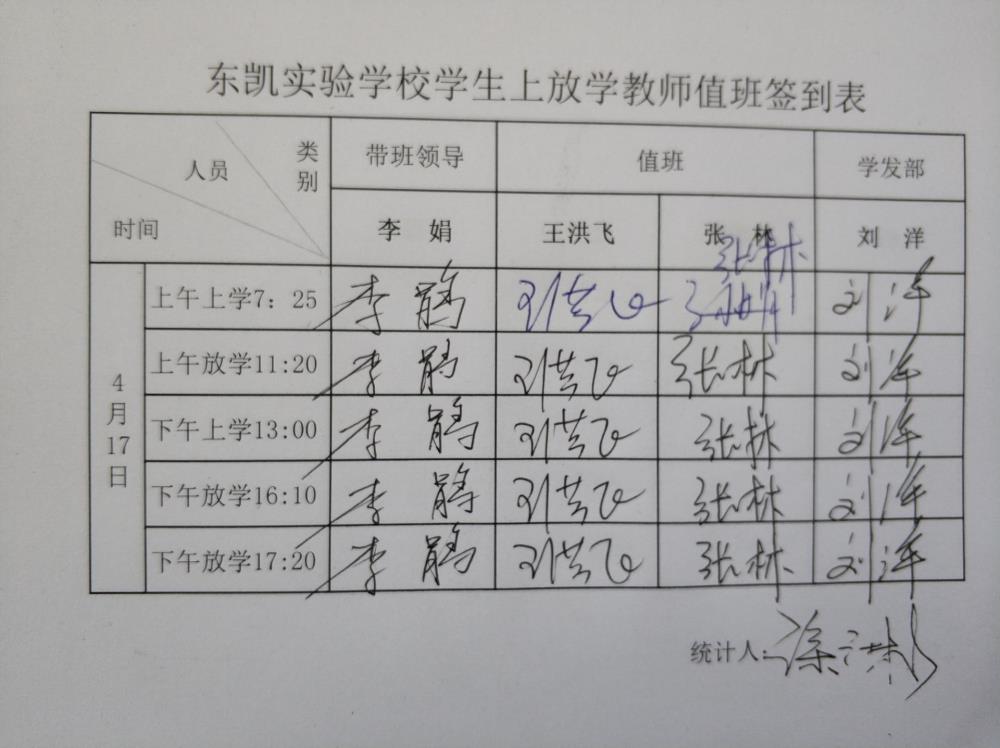 东凯实验学校学生上放学教师值班签到表
人员 类别 时间 带班领导 值班 学发部
李 娟 王洪飞 张 林 刘 洋
张林
4月17日
上午上学7:25 李 娟 王洪飞 刘洋
上午放学11:20 李 娟 王洪飞 张林 刘洋
下午上学13:00 李 娟 王洪飞 张林 刘洋
下午放学16:10 李 娟 王洪飞 张林 刘洋
下午放学17:20 李 娟 王洪飞 张林 刘洋
统计人:涂洪彬